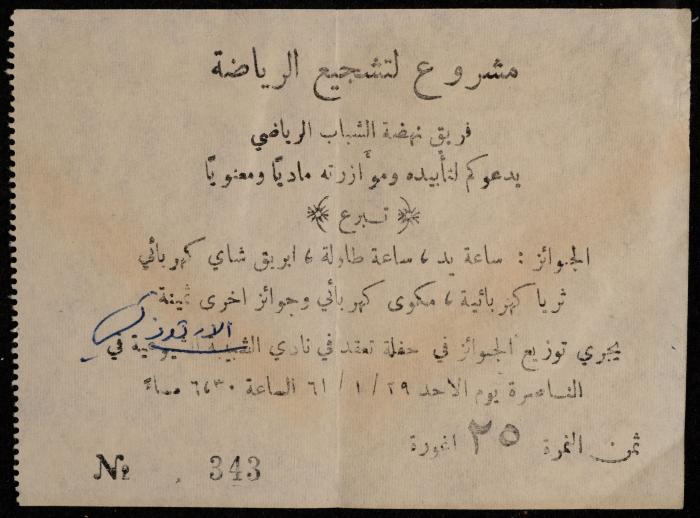 مشروع لتشجيع الرياضة
فريق نهضة الشباب الرياضي
يدعوكم لتأييده ومؤازرته ماديًا ومعنويًا
تبرع
الجوائز : ساعة يد ، ساعة طاولة ، ابريق شاي كهربائي
ثريا كهربائية ، مكوى كهربائي وجوائز اخرى ثمينة
الارثوذكسي
يجري توزيع الجوائز في حفلة تعقد في نادي الشبيبة الشيوعية في
الناصرة يوم الاحد ٢٩ / ١ / ٦١ الساعة ٦،٣٠ مساءً
ثمن النمرة ٢٥ اغورة
№ 343